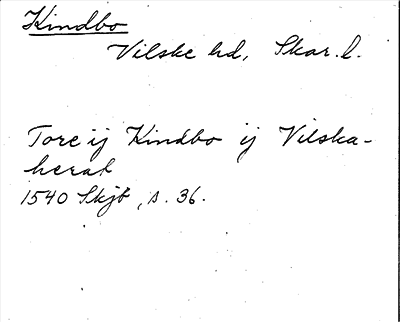 Kindbo
Vilske hd, Skar. l.
Tore ij Kindbo ij Vilska-
herat
1540 Skjb, s. 36.